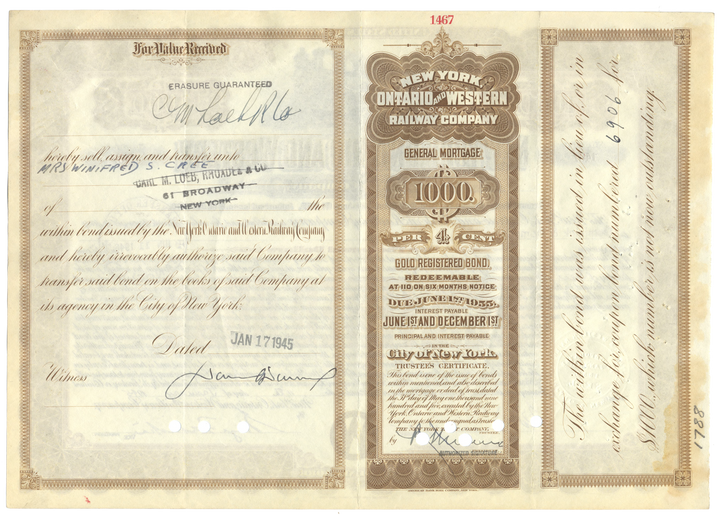 1467
For Value Received
ERASURE GUARANTEED
hereby sell, assign and transfer unto
MRS WINIFRED S. CREE
CARL M. LOEB, RHOADES & CO
61 BROADWAY
NEW YORK
of the
within bond issued by the New York Ontario and Western Railway Company
and hereby irrevocably authorize said Company to
transfer said bond on the books of said Company at
its agency in the City of New York.
Dated JAN 17 1945
Witness
NEW YORK
ONTARIO AND WESTERN
RAILWAY COMPANY
GENERAL MORTGAGE
1000
PER 4 CENT
GOLD REGISTERED BOND.
REDEEMABLE
AT 110 ON SIX MONTHS NOTICE
DUE JUNE 1ST 1955.
INTEREST PAYABLE
JUNE 1ST AND DECEMBER 1ST
PRINCIPAL AND INTEREST PAYABLE
IN THE
City of New York.
TRUSTEE'S CERTIFICATE.
This bond is one of the issue of bonds
within mentioned, and also described
in the mortgage or deed of trust, dated
the 31st day of May one thousand nine
hundred and five, executed by the New
York, Ontario and Western Railway
Company to the undersigned trustee.
THE NEW YORK TRUST COMPANY,
by
AUTHORIZED SIGNATURE
The within bond was issued in lieu of, or in
exchange for, coupon bond numbered 6906 for
$1000, which number is not now outstanding.
1788